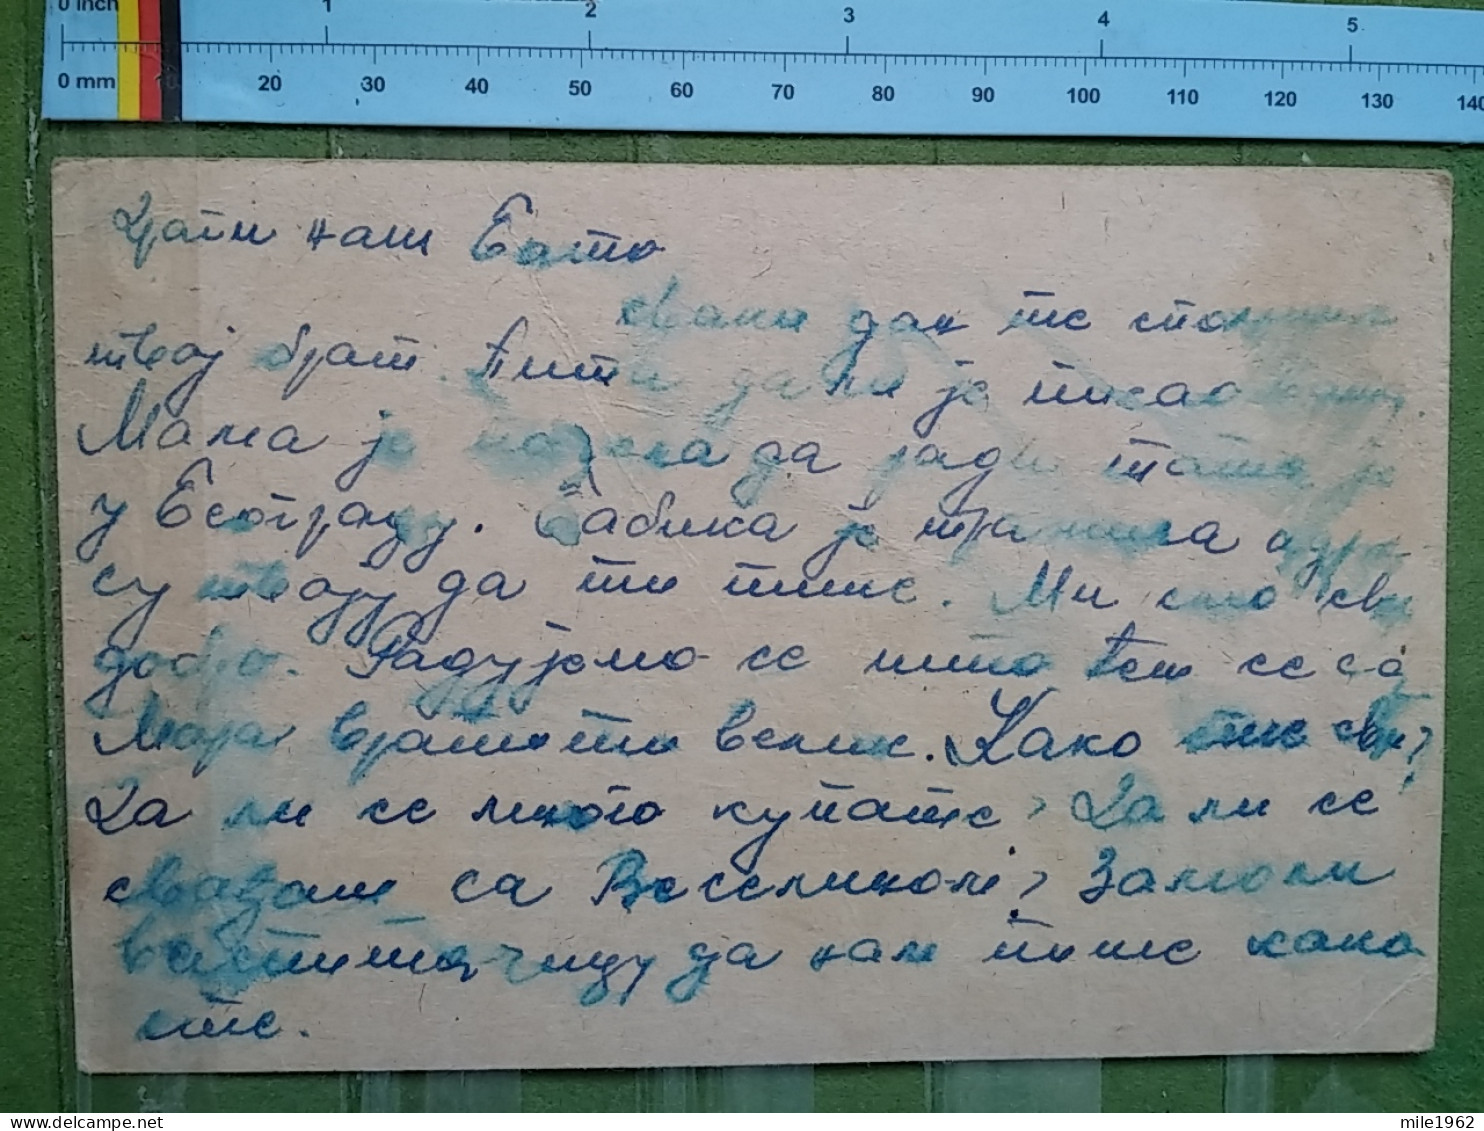 0 inch 1 2 3 4 5
0 mm 10 20 30 40 50 60 70 80 90 100 110 120 130 140
Драги наш Бато
сваки дан те спомиње
твој брат. Пита да ли је писао
Мама је почела да ради тата је
у Београду. Бабика је тражила адре-
су твоју да ти пише. Ми смо сви
добро. Радујемо се што ћеш се са
Мора вратити велик. Како сте сви?
Да ли се много купате? Да ли се
свађаш са Веселином? Замоли
васпитачицу да нам пише како
сте.
mile1962